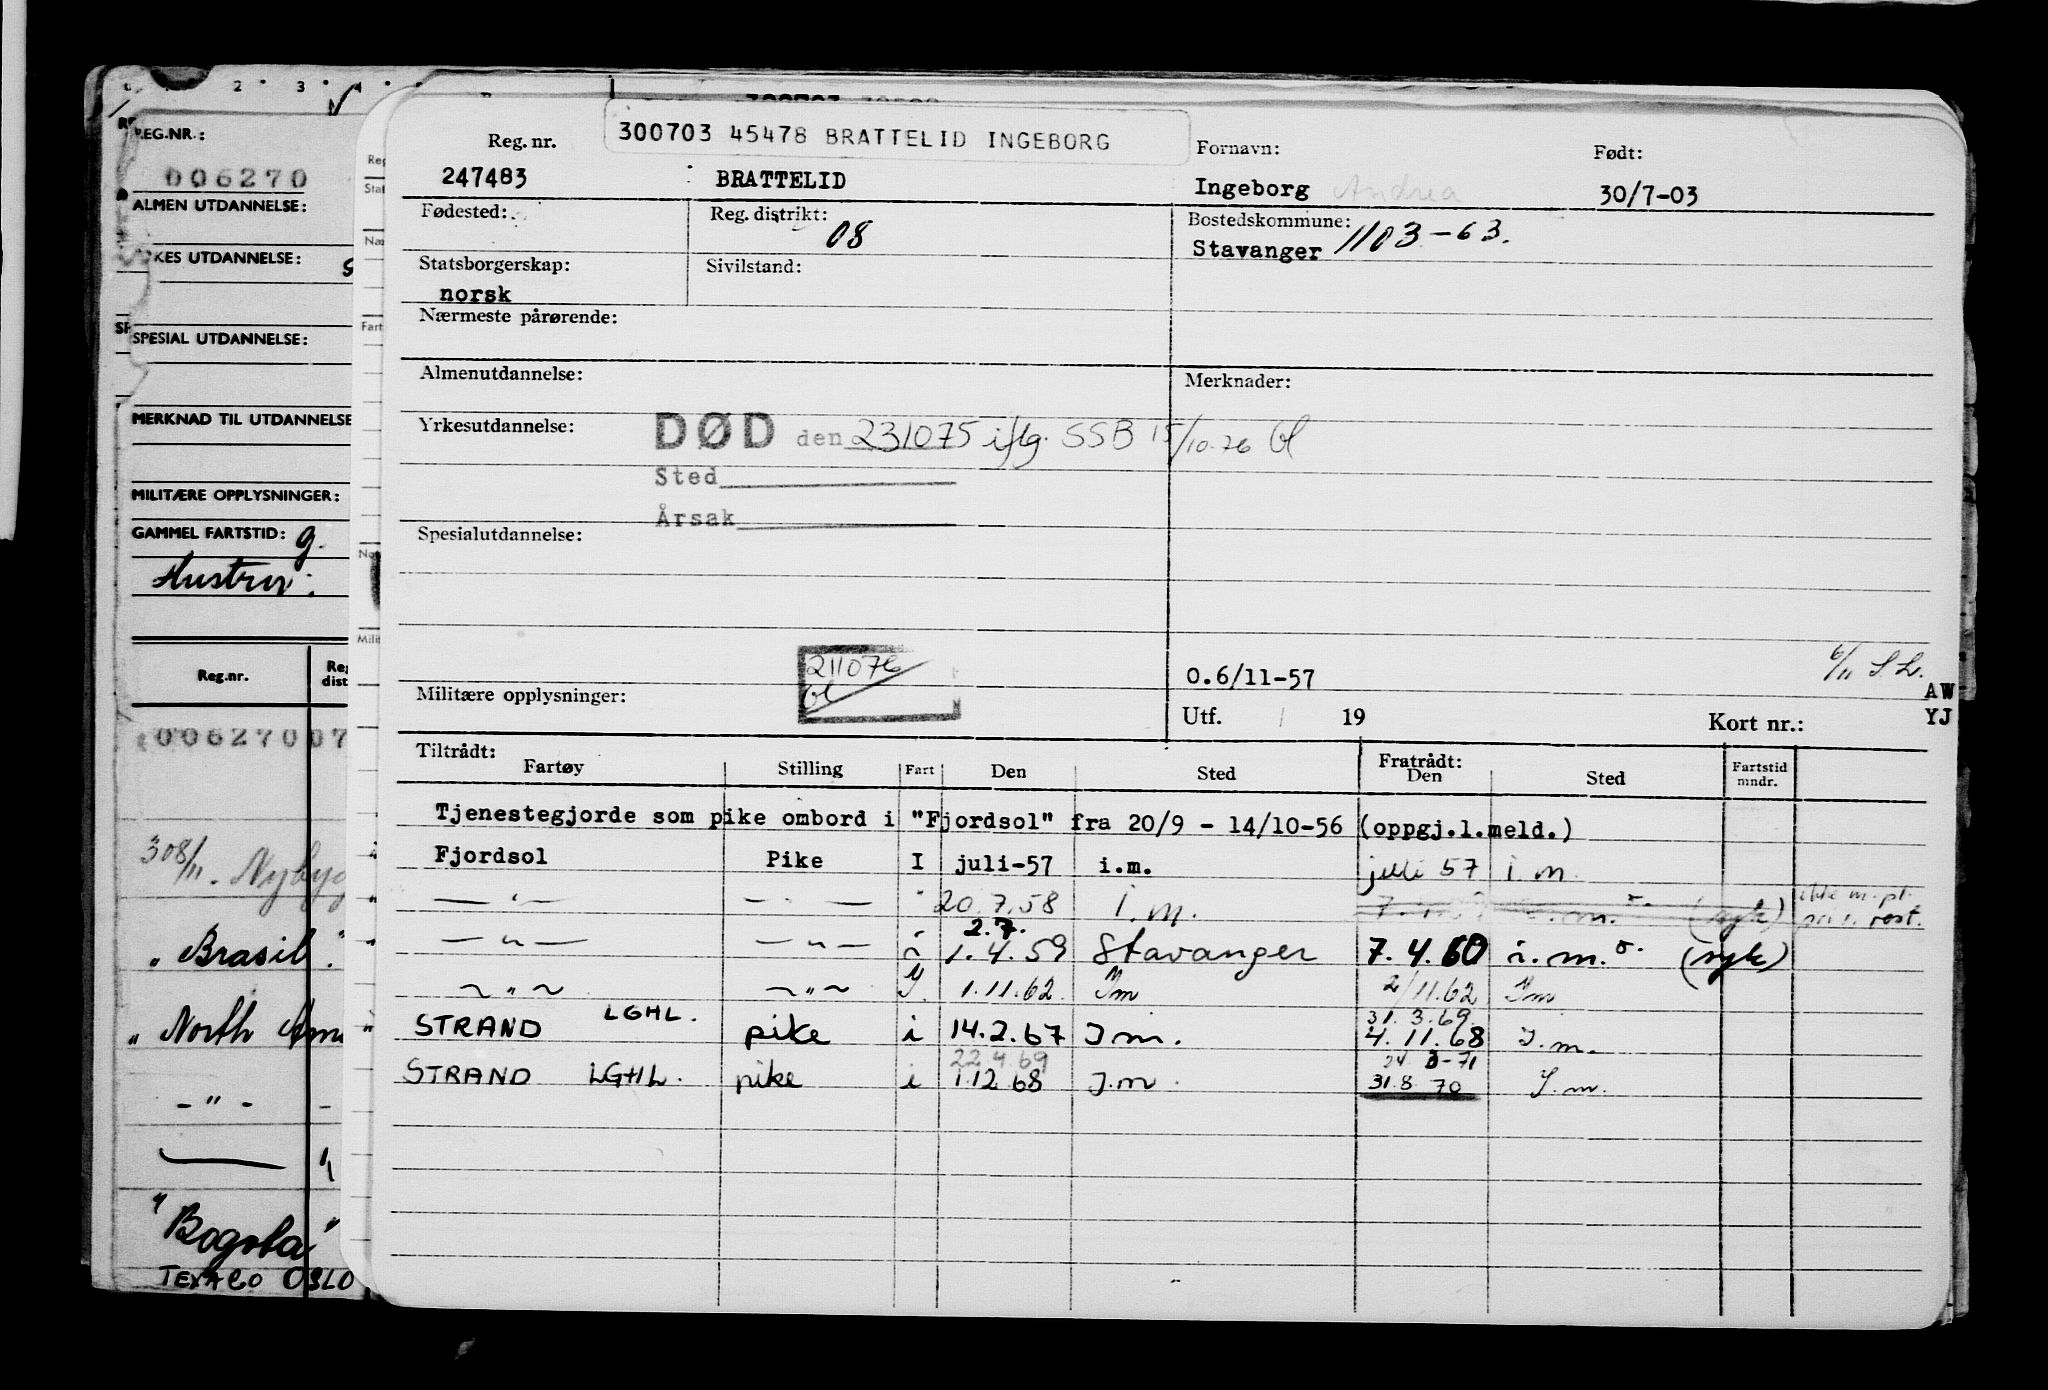 2 3 4
REG.NR.:
006270
ALMEN UTDANNELSE:
KES UTDANNELSE:
SPESIAL UTDANNELSE:
MERKNAD TIL UTDANNELSE
MILITÆRE OPPLYSNINGER:
GAMMEL FARTSTID: g.
Hustru:
Reg.nr.
dist
00627007
308/11. Nybyg
"Brasil"
"North Am
- " -
"Bogota"
TEXACO OSLO
300703 45478 BRATTELID INGEBORG
Reg. nr. Fornavn: Født:
247483 BRATTELID Ingeborg Andrea 30/7-03
Fødested: Reg. distrikt: 08 Bostedskommune:
Stavanger 1103-63.
Statsborgerskap: Sivilstand:
norsk
Nærmeste pårørende:
Almenutdannelse: Merknader:
Yrkesutdannelse: DØD den 231075 iflg. SSB 15/10.76 bl
Sted
Årsak
Spesialutdannelse:
211076
bl
0.6/11-57 6/11 S L.
AW
Militære opplysninger: Utf. 19 Kort nr.: YJ
Tiltrådt: Fratrådt:
Fartøy Stilling Fart Den Sted Den Sted Fartstid mndr.
Tjenestegjorde som pike ombord i "Fjordsol" fra 20/9 - 14/10-56 (oppgj.l.meld.)
Fjordsol Pike I juli-57 i.m. juli 57 i.m.
— " — — " — " 20.7.58 i.m.
2.7.
— " — — " — i 1.4.59 Stavanger 7.4.60 i.m. (syk)
~ " ~ ~ " ~ I. 1.11.62. Im 2/11.62 Im
31.3.69.
STRAND LGHL. pike i 14.2.67 I m. 4.11.68 I.m.
22.4.69
STRAND LGHL. pike i 1.12 68 I.m. 31.8.70 I.m.